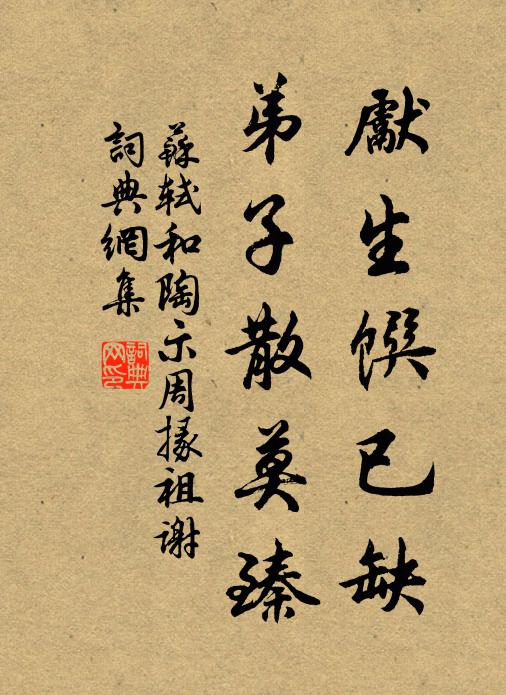 獻生饌已缺
弟子散莫臻
蘇軾和陶示周掾祖謝
詞典網集
詞典網印